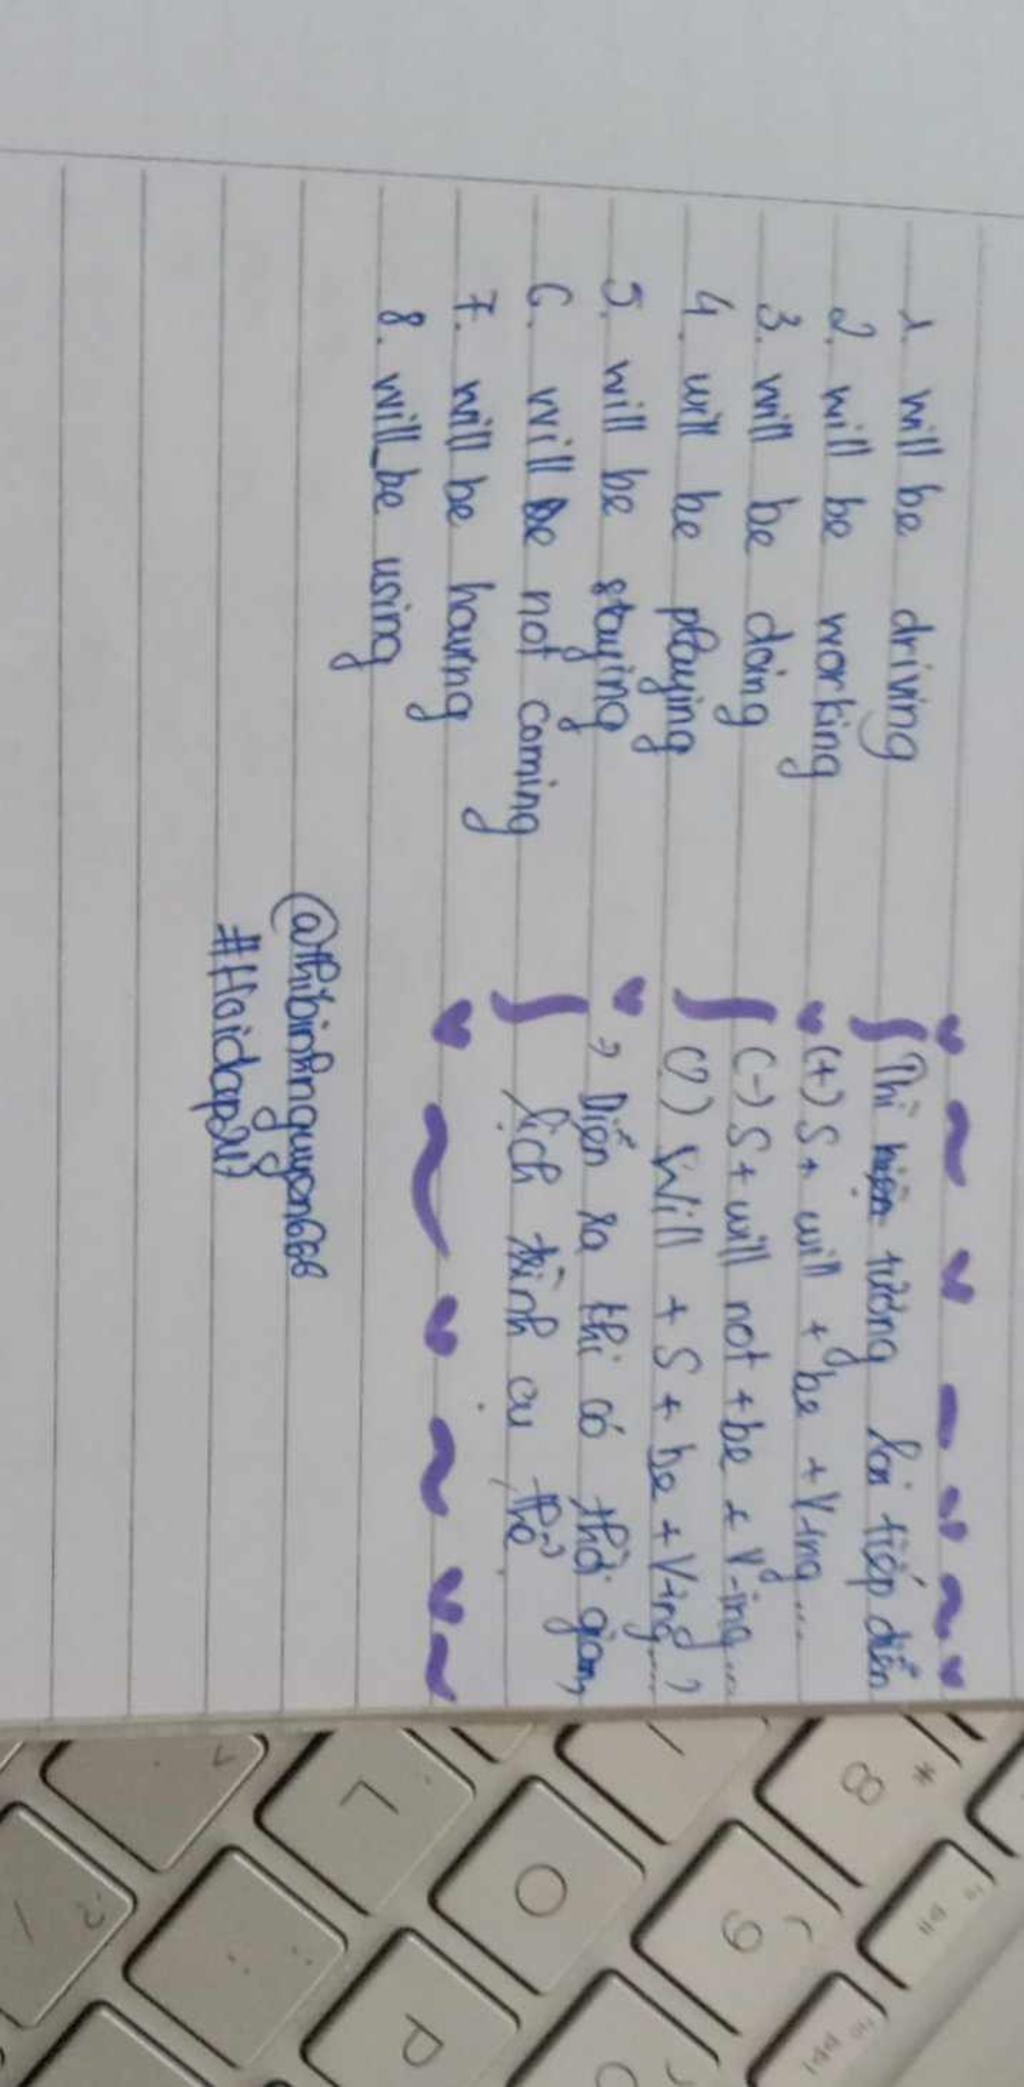 1. will be driving
2. will be working
3. will be doing
4. will be playing
5. will be staying
6. will be not coming
7. will be having
8. will be using
Thì hiện tương lai tiếp diễn
(+) S + will + be + V-ing...
(-) S + will not + be + V-ing...
(?) Will + S + be + V-ing...?
, Diễn ra khi có thời gian,
lịch trình cụ thể.
@thibinhnguyen666
#Hoidap247
* 8
( 9
O
P
L